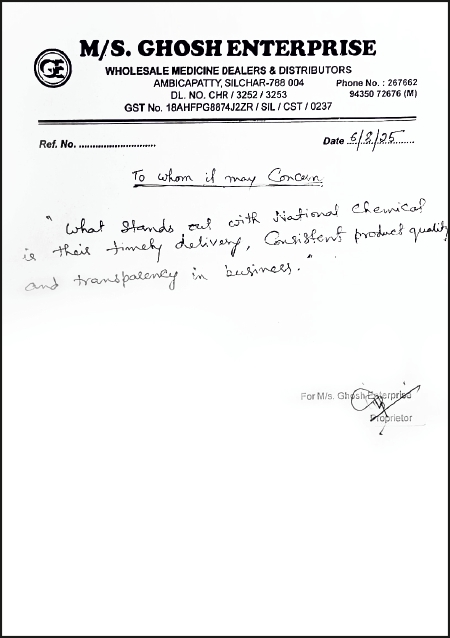 GE
M/S. GHOSH ENTERPRISE
WHOLESALE MEDICINE DEALERS & DISTRIBUTORS
AMBICAPATTY, SILCHAR-788 004
Phone No. : 267662
DL. NO. CHR / 3252 / 3253
94350 72676 (M)
GST No. 18AHFPG8874J2ZR / SIL / CST / 0237
Ref. No. ............................
Date 6/8/25
To whom it may Concern
"What stands out with National Chemical
is their timely delivery, Consistent product quality
and transparency in business."
For M/s. Ghosh Enterprise
Proprietor